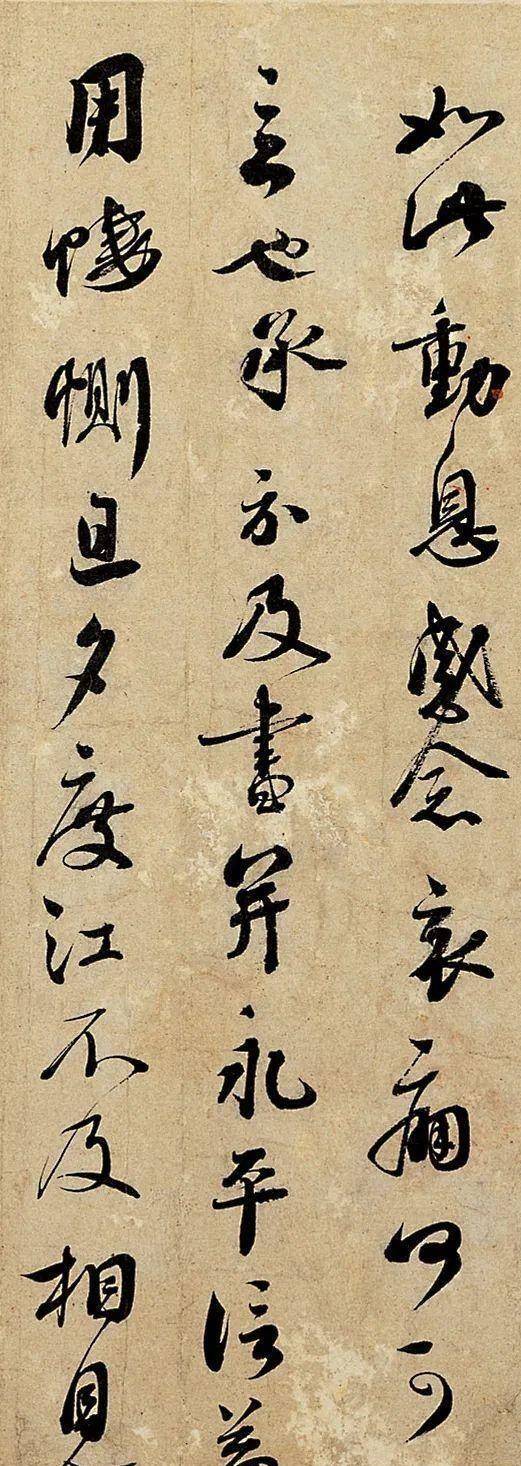 如此動息感念哀痛何可
言也承示及書并永平信益
用悽惻旦夕度江不及相見